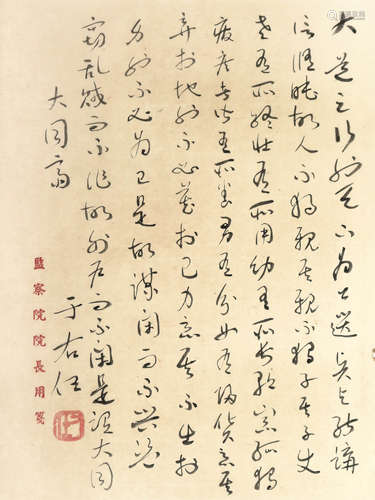 大道之行也天下為公選賢與能講
信修睦故人不獨親其親不獨子其子使
老有所終壯有所用幼有所長矜寡孤獨
廢疾者皆有所養男有分女有歸貨惡其
棄於地也不必藏於己力惡其不出於
身也不必為己是故謀閉而不興盜
竊亂賊而不作故外戶而不閉是謂大同
大同篇
于右任
監察院院長用箋